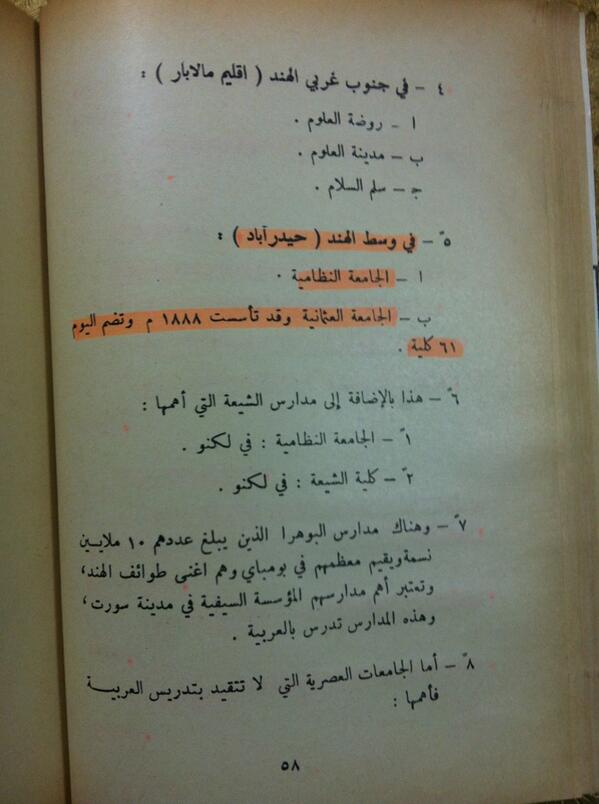 ٤ – في جنوب غربي الهند ( اقليم مالابار ) :
ا – روضة العلوم .
ب – مدينة العلوم .
ج – سلم السلام .
٥ – في وسط الهند ( حيدرآباد ) :
ا – الجامعة النظامية .
ب – الجامعة العثمانية وقد تأسست ١٨٨٨ م وتضم اليوم
٦١ كلية .
٦ – هذا بالإضافة إلى مدارس الشيعة التي أهمها :
١ – الجامعة النظامية : في لكنو .
٢ – كلية الشيعة : في لكنو .
٧ – وهناك مدارس البوهرا الذين يبلغ عددهم ١٠ ملايين
نسمة ويقيم معظمهم في بومباي وهم اغنى طوائف الهند،
وتعتبر أهم مدارسهم المؤسسة السيفية في مدينة سورت،
وهذه المدارس تدرس بالعربية .
٨ – أما الجامعات العصرية التي لا تتقيد بتدريس العربية
فأهمها :
٥٨